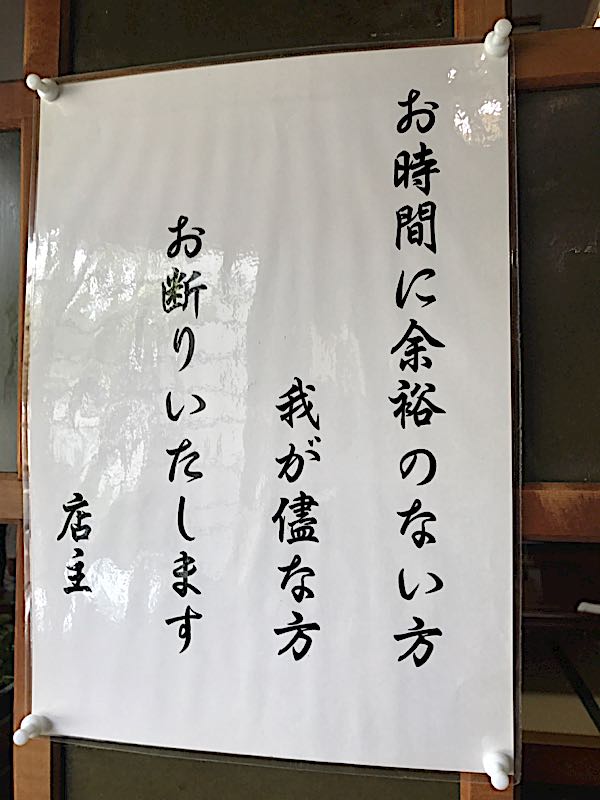 お時間に余裕のない方
我が儘な方
お断りいたします
店主